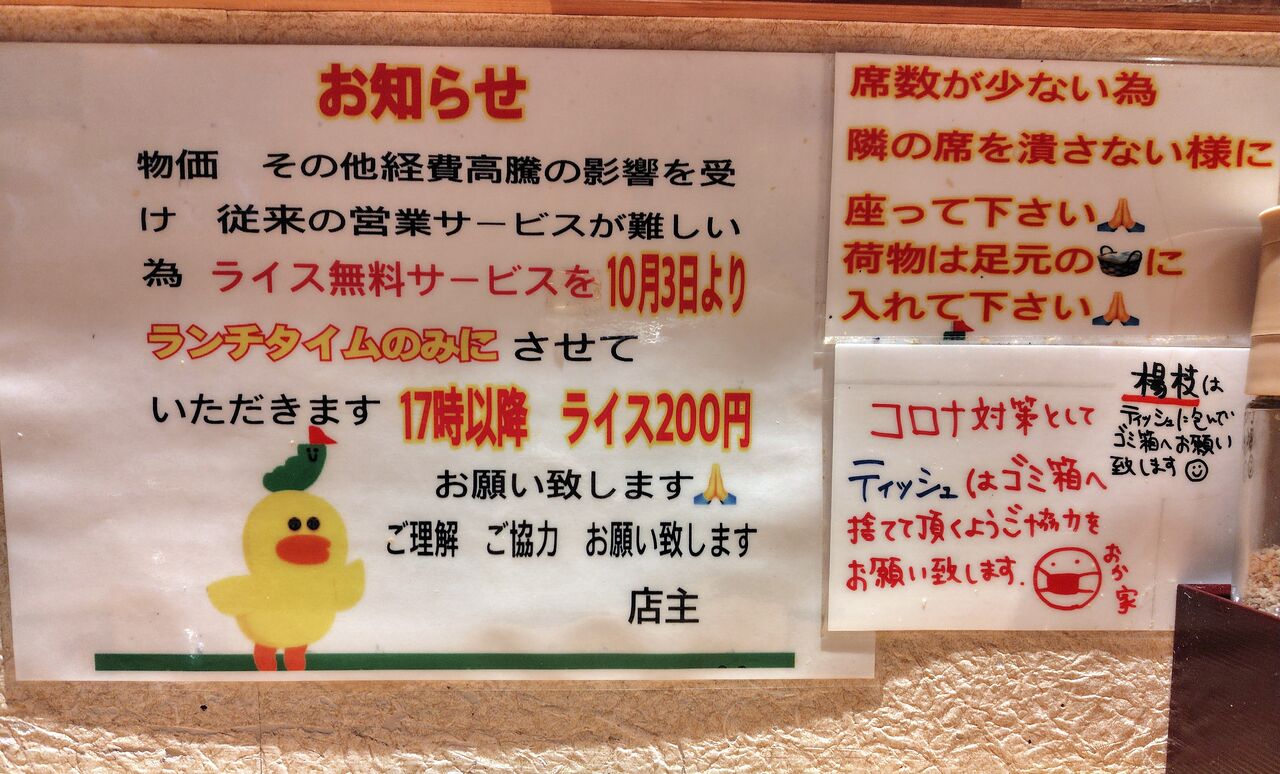 お知らせ
物価　その他経費高騰の影響を受
け　従来の営業サービスが難しい
為　ライス無料サービスを 10月3日より
ランチタイムのみに させて
いただきます 17時以降　ライス200円
お願い致します🙏
ご理解　ご協力　お願い致します
店主
席数が少ない為
隣の席を潰さない様に
座って下さい🙏
荷物は足元の🧺に
入れて下さい🙏
コロナ対策として
ティッシュはゴミ箱へ
捨てて頂くようご協力を
お願い致します.
おか家
楊枝は
ティッシュに包んで
ゴミ箱へお願い
致します☺